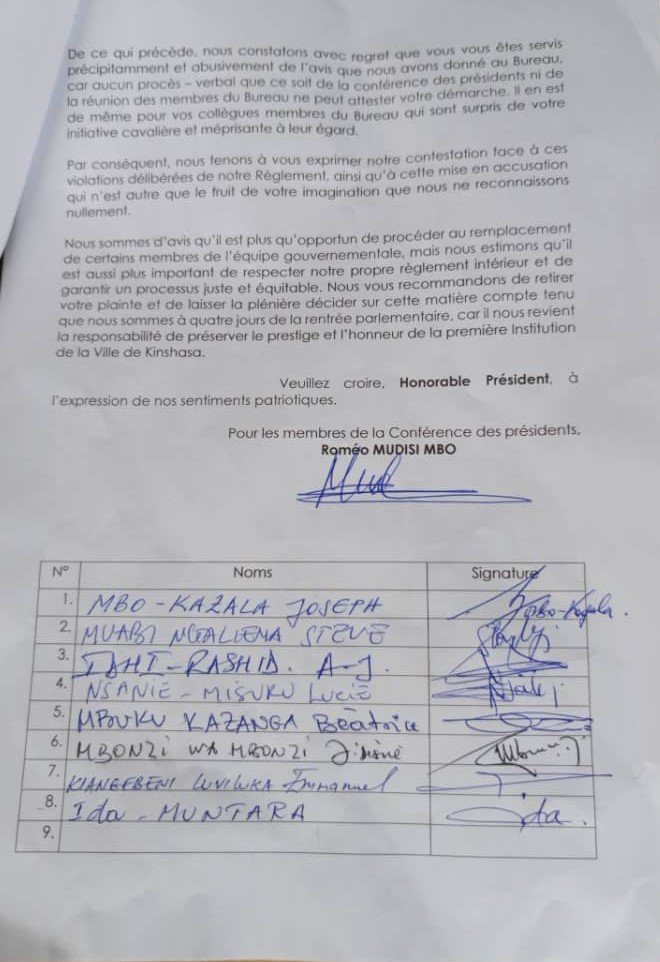 De ce qui précède, nous constatons avec regret que vous vous êtes servis
précipitamment et abusivement de l'avis que nous avons donné au Bureau,
car aucun procès – verbal que ce soit de la conférence des présidents ni de
la réunion des membres du Bureau ne peut attester votre démarche. Il en est
de même pour vos collègues membres du Bureau qui sont surpris de votre
initiative cavalière et méprisante à leur égard.
Par conséquent, nous tenons à vous exprimer notre contestation face à ces
violations délibérées de notre Règlement, ainsi qu'à cette mise en accusation
qui n'est autre que le fruit de votre imagination que nous ne reconnaissons
nullement.
Nous sommes d'avis qu'il est plus qu'opportun de procéder au remplacement
de certains membres de l'équipe gouvernementale, mais nous estimons qu'il
est aussi plus important de respecter notre propre règlement intérieur et de
garantir un processus juste et équitable. Nous vous recommandons de retirer
votre plainte et de laisser la plénière décider sur cette matière compte tenu
que nous sommes à quatre jours de la rentrée parlementaire, car il nous revient
la responsabilité de préserver le prestige et l'honneur de la première Institution
de la Ville de Kinshasa.
Veuillez croire, Honorable Président, à
l'expression de nos sentiments patriotiques.
Pour les membres de la Conférence des présidents,
Roméo MUDISI MBO
N° Noms Signature
1. MBO - KAZALA JOSEPH Mbo-Kazala.
2. MUABI STEVE
3. RASHID. A-J.
4. NSANIE - MISURU LUCIE
5. MBUKU KAZANGA Béatrice
6. MBONZI WA MBONZI
7. LUVILUKA Emmanuel
8. Ida - MUNTARA Ida.
9.